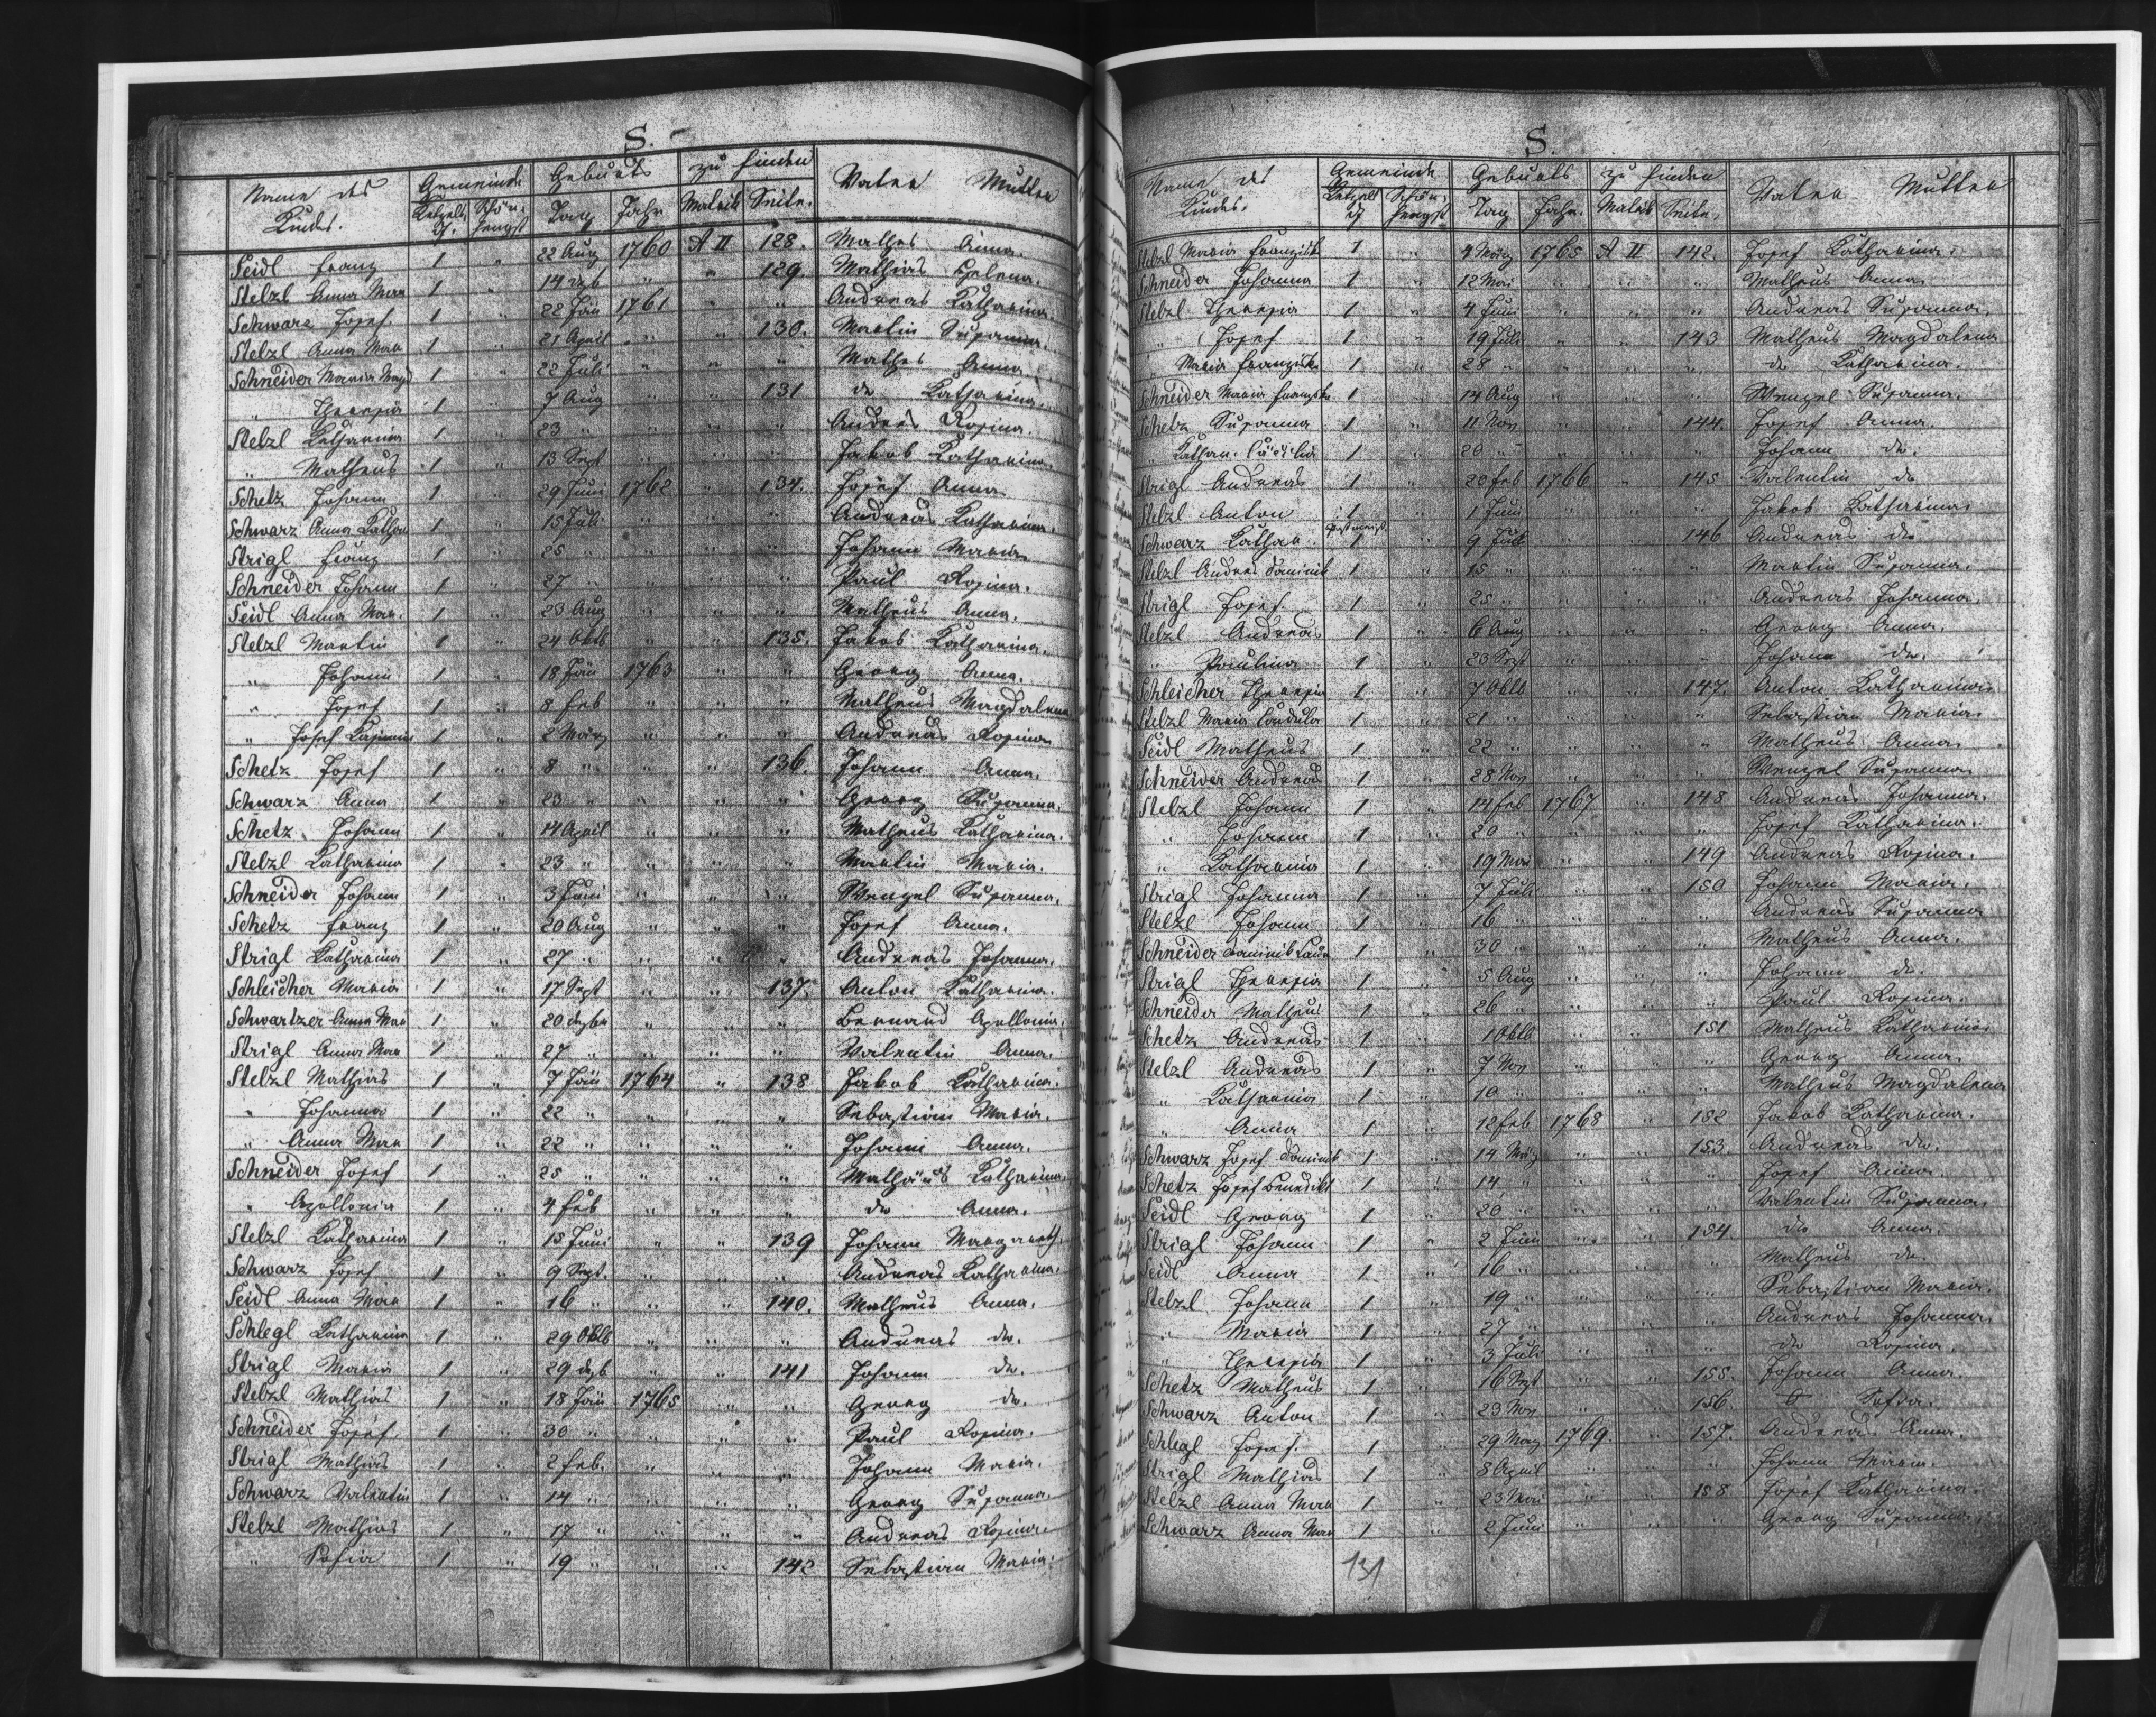 S.
Name des Kindes. Gemeinde Geburts zu finden Vater Mutter
Ketzelsdf. Schönhengst Tag Jahr Matrik Seite.
Seidl Franz 1 " 22 Aug 1760 A II 128. Mathes Anna.
Stelzl Anna Mar 1 " 14 dzb " " 129. Mathias Helena.
Schwarz Josef. 1 " 22 Jän 1761 " " Andreas Katharina.
Stelzl Anna Mar 1 " 21 April " " 130. Martin Susanna.
Schneider Maria Magd 1 " 22 Juli " " " Mathes Anna
" Theresia 1 " 7 Aug " " 131 do Katharina.
Stelzl Katharina 1 " 23 " " " " Andres Rosina.
" Matheus 1 " 13 Sept " " " Jakob Katharina.
Schetz Johann 1 " 29 Juni 1762 " 134. Josef Anna.
Schwarz Anna Kathar 1 " 15 Juli " " " Andreas Katharina.
Strigl Franz 1 " 25 " " " " Johann Maria.
Schneider Johann 1 " 27 " " " " Paul Rosina.
Seidl Anna Mar. 1 " 23 Aug " " " Matheus Anna.
Stelzl Martin 1 " 24 Oktb " " 135. Jakob Katharina.
" Johann 1 " 18 Jän 1763 " " Georg Anna.
" Josef 1 " 8 Feb " " " Matheus Magdalena
" Josef Kasimir 1 " 2 März " " " Andreas Rosina
Schetz Josef 1 " 8 " " " 136. Johann Anna.
Schwarz Anna 1 " 23 " " " " Georg Susanna.
Schetz Johann 1 " 14 April " " " Matheus Katharina.
Stelzl Katharina 1 " 23 " " " " Martin Maria.
Schneider Johann 1 " 3 Juni " " " Wenzel Susanna.
Schetz Franz 1 " 20 Aug " " " Josef Anna.
Strigl Katharina 1 " 27 " " " " Andreas Johanna.
Schleicher Maria 1 " 17 Sept " " 137. Anton Katharina.
Schwartzer Anna Mar 1 " 20 dezbr " " " Bernard Apollonia.
Strigl Anna Mar 1 " 27 " " " " Valentin Anna.
Stelzl Mathias 1 " 7 Jän 1764 " 138 Jakob Katharina.
" Johanna 1 " 22 " " " " Sebastian Maria.
" Anna Mar 1 " 22 " " " " Johann Anna.
Schneider Josef 1 " 25 " " " " Mathäus Katharina.
" Apollonia 1 " 4 Feb " " " do Anna.
Stelzl Katharina 1 " 15 Juni " " 139 Johann Margareth.
Schwarz Josef 1 " 9 Sept. " " " Andreas Katharina.
Seidl Anna Mar 1 " 16 " " " 140. Matheus Anna.
Schlegl Katharina 1 " 29 Oktb " " " Andreas do.
Strigl Maria 1 " 29 dezb " " 141 Johann do.
Stelzl Mathias 1 " 18 Jän 1765 " " Georg do.
Schneider Josef. 1 " 30 " " " " Paul Rosina.
Strigl Mathias 1 " 2 Feb. " " " Johann Maria.
Schwarz Valentin 1 " 14 " " " " Georg Susanna.
Stelzl Mathias 1 " 17 " " " " Andreas Rosina.
" Sofia 1 " 19 " " " 142 Sebastian Maria.
S.
Name des Kindes. Gemeinde Geburts zu finden Vater Mutter
Ketzelsdf Schönhengst Tag Jahr. Matrik Seite.
Stelzl Maria Franziska 1 " 4 März 1765 A II 142. Josef Katharina.
Schneider Johanna 1 " 12 Mai " " " Matheus Anna.
Stelzl Theresia 1 " 4 Juni " " " Andreas Susanna.
" Josef 1 " 19 Juli " " 143 Matheus Magdalena
" Maria Franziska 1 " 28 " " " " do Katharina.
Schneider Maria Franziska 1 " 14 Aug " " " Wenzel Susanna.
Schetz Susanna 1 " 11 Nov " " 144. Josef Anna.
" Kathar. Cäcilia 1 " 20 " " " " Johann do.
Strigl Andreas 1 " 20 Feb 1766 " 145 Valentin do
Stelzl Anton 1 " 1 Juni " " " Jakob Katharina.
Schwarz Kathar. 1 " 9 Juli " " 146 Andreas do
Stelzl Andres Dominik 1 " 15 " " " " Martin Susanna.
Strigl Josef. 1 " 25 " " " " Andreas Johanna.
Stelzl Andreas 1 " 6 Aug " " " Georg Anna.
" Paulina 1 " 23 Sept " " " Johann do.
Schleicher Theresia 1 " 7 Oktb " " 147. Anton Katharina.
Stelzl Maria Cordula 1 " 21 " " " " Sebastian Maria.
Seidl Matheus 1 " 22 " " " " Matheus Anna.
Schneider Andreas 1 " 28 Nov " " " Wenzel Susanna.
Stelzl Johann 1 " 14 Feb 1767 " 148 Andreas Johanna.
" Johann 1 " 20 " " " " Josef Katharina.
" Katharina 1 " 19 Mai " " 149 Andreas Rosina.
Strigl Johanna 1 " 7 Juli " " 150 Johann Maria.
Stelzl Johann 1 " 16 " " " " Andreas Susanna
Schneider Dominik 1 " 30 " " " " Matheus Anna.
Strigl Theresia 1 " 5 Aug " " " Johann do.
Schneider Matheus 1 " 26 " " " " Paul Rosina.
Schetz Andreas 1 " 1 Oktb " " 151 Matheus Katharina
Stelzl Andreas 1 " 7 Nov " " " Georg Anna.
" Katharina 1 " 10 " " " " Matheus Magdalena
" Anna 1 " 12 Feb 1768 " 152 Jakob Katharina.
Schwarz Josef Dominik 1 " 14 März " " 153. Andreas do.
Schetz Josef Benedikt 1 " 14 " " " " Josef Anna.
Seidl Georg 1 " 20 " " " " Valentin Susanna.
Strigl Johann 1 " 2 Juni " " 154 do Anna.
Seidl Anna 1 " 16 " " " " Matheus do.
Stelzl Johann 1 " 19 " " " " Sebastian Maria.
" Maria 1 " 27 " " " " Andreas Johanna.
" Theresia 1 " 3 Juli " " " do Rosina.
Schetz Matheus 1 " 16 Sept " " 155. Johann Anna.
Schwarz Anton 1 " 23 Nov " " 156 Sofia.
Schlegl Josef. 1 " 29 1769. " 157. Andreas Anna.
Strigl Mathias 1 " 8 April " " " Johann Maria.
Stelzl Anna Mar 1 " 23 Mai " " 158 Josef Katharina.
Schwarz Anna Mar 1 " 2 Juni " " " Georg Susanna.
131